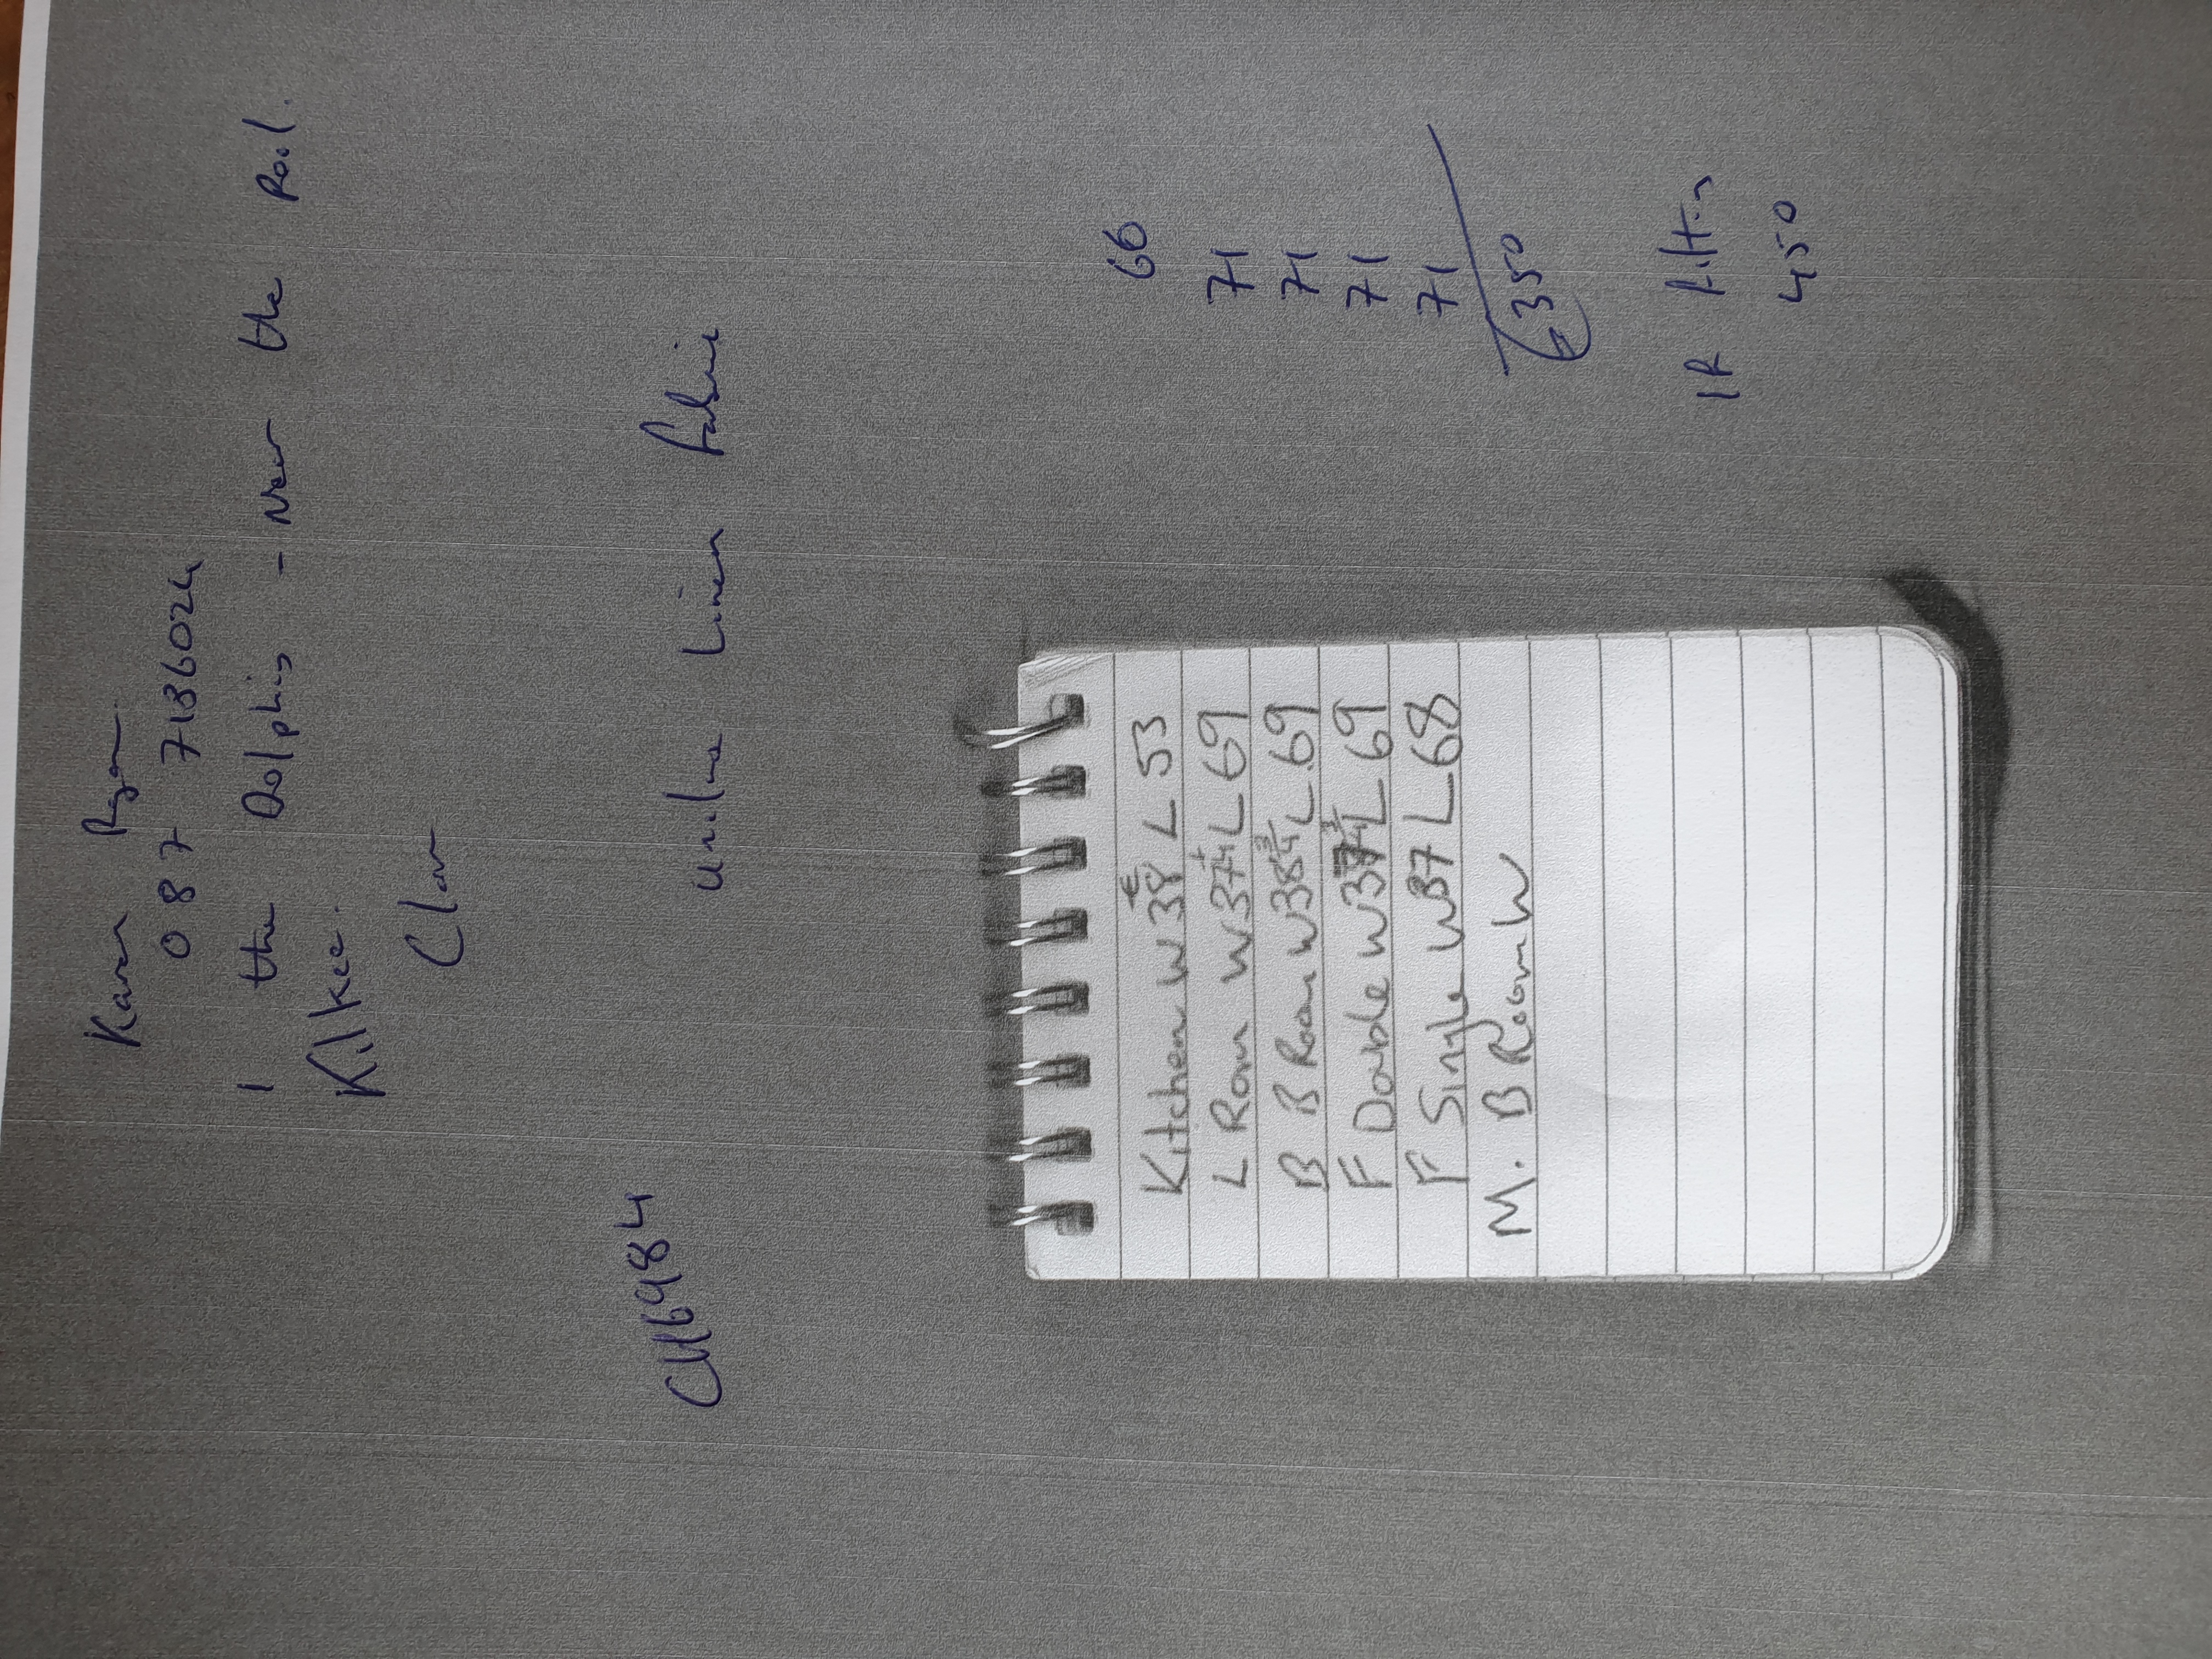 Karen Ryan
087 7136024
1 the Dolphins - Near the Pool.
Kilkee.
Clare
CH6984
Unilux Linen fabric
Kitchen W 38 L 53 66
L Room W 37 1/4 L 69 71
B B Room W 38 3/4 L 69 71
F Double W 37 3/4 L 69 71
F Single W 37 L 68 71
M. B Room W
€350
IR fitting
450